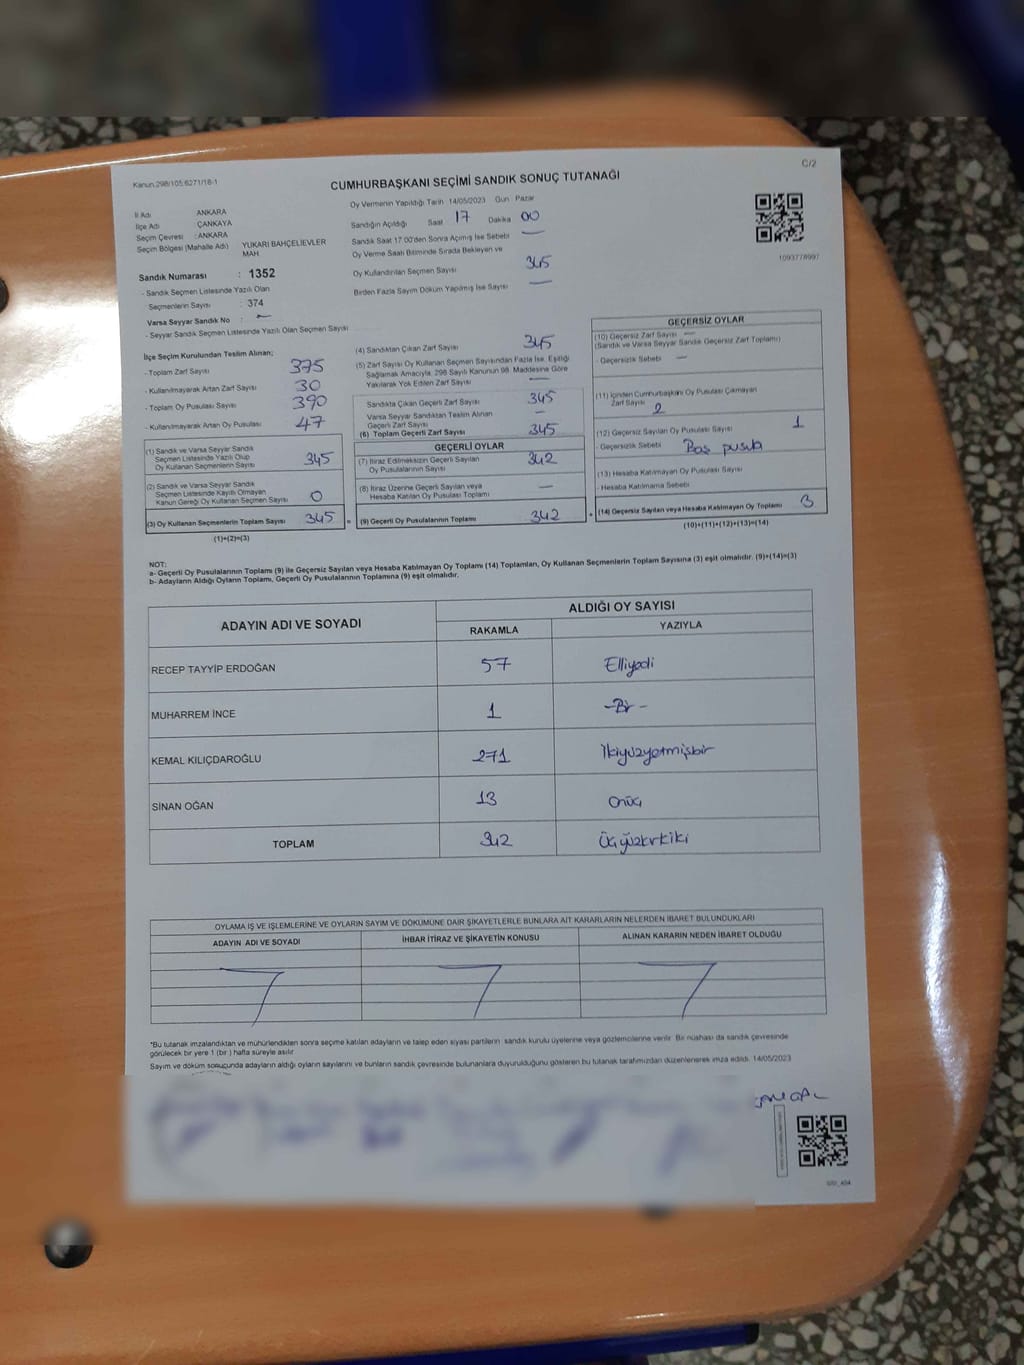 Kanun:298/105:6271/18-1
C/2
CUMHURBAŞKANI SEÇİMİ SANDIK SONUÇ TUTANAĞI
İl Adı ANKARA
İlçe Adı ÇANKAYA
Seçim Çevresi : ANKARA
Seçim Bölgesi (Mahalle Adı) YUKARI BAHÇELİEVLER MAH
Sandık Numarası : 1352
- Sandık Seçmen Listesinde Yazılı Olan
Seçmenlerin Sayısı : 374
Varsa Seyyar Sandık No : —
- Seyyar Sandık Seçmen Listesinde Yazılı Olan Seçmen Sayısı
Oy Vermenin Yapıldığı Tarih 14/05/2023 Gün Pazar
Sandığın Açıldığı Saat 17 Dakika 00
Sandık Saat 17:00'den Sonra Açmış İse Sebebi —
Oy Verme Saati Bitiminde Sırada Bekleyen ve
Oy Kullandırılan Seçmen Sayısı 345
Birden Fazla Sayım Döküm Yapılmış İse Sayısı —
1093778997
İlçe Seçim Kurulundan Teslim Alınan;
- Toplam Zarf Sayısı 375
- Kullanılmayarak Artan Zarf Sayısı 30
- Toplam Oy Pusulası Sayısı 390
- Kullanılmayarak Artan Oy Pusulası 47
(1) Sandık ve Varsa Seyyar Sandık
Seçmen Listesinde Yazılı Olup
Oy Kullanan Seçmenlerin Sayısı 345
(2) Sandık ve Varsa Seyyar Sandık
Seçmen Listesinde Kayıtlı Olmayan
Kanun Gereği Oy Kullanan Seçmen Sayısı 0
(3) Oy Kullanan Seçmenlerin Toplam Sayısı 345
(1)+(2)=(3)
(4) Sandıktan Çıkan Zarf Sayısı 345
(5) Zarf Sayısı Oy Kullanan Seçmen Sayısından Fazla İse, Eşitliği
Sağlamak Amacıyla, 298 Sayılı Kanunun 98. Maddesine Göre
Yakılarak Yok Edilen Zarf Sayısı —
Sandıkta Çıkan Geçerli Zarf Sayısı 345
Varsa Seyyar Sandıktan Teslim Alınan
Geçerli Zarf Sayısı —
(6) Toplam Geçerli Zarf Sayısı 345
GEÇERLİ OYLAR
(7) İtiraz Edilmeksizin Geçerli Sayılan
Oy Pusulalarının Sayısı 342
(8) İtiraz Üzerine Geçerli Sayılan veya
Hesaba Katılan Oy Pusulası Toplamı —
(9) Geçerli Oy Pusulalarının Toplamı 342
GEÇERSİZ OYLAR
(10) Geçersiz Zarf Sayısı —
(Sandık ve Varsa Seyyar Sandık Geçersiz Zarf Toplamı)
- Geçersizlik Sebebi —
(11) İçinden Cumhurbaşkanı Oy Pusulası Çıkmayan
Zarf Sayısı 2
(12) Geçersiz Sayılan Oy Pusulası Sayısı 1
- Geçersizlik Sebebi Boş pusula
(13) Hesaba Katılmayan Oy Pusulası Sayısı
- Hesaba Katılmama Sebebi
(14) Geçersiz Sayılan veya Hesaba Katılmayan Oy Toplamı 3
(10)+(11)+(12)+(13)=(14)
NOT:
a- Geçerli Oy Pusulalarının Toplamı (9) ile Geçersiz Sayılan veya Hesaba Katılmayan Oy Toplamı (14) Toplamları, Oy Kullanan Seçmenlerin Toplam Sayısına (3) eşit olmalıdır. (9)+(14)=(3)
b- Adayların Aldığı Oyların Toplamı, Geçerli Oy Pusulalarının Toplamına (9) eşit olmalıdır.
ADAYIN ADI VE SOYADI
ALDIĞI OY SAYISI
RAKAMLA YAZIYLA
RECEP TAYYİP ERDOĞAN 57 Elliyedi
MUHARREM İNCE 1 -Bir-
KEMAL KILIÇDAROĞLU 271 İkiyüzyetmişbir
SİNAN OĞAN 13 Onüç
TOPLAM 342 Üçyüzkırkiki
OYLAMA İŞ VE İŞLEMLERİNE VE OYLARIN SAYIM VE DÖKÜMÜNE DAİR ŞİKAYETLERLE BUNLARA AİT KARARLARIN NELERDEN İBARET BULUNDUKLARI
ADAYIN ADI VE SOYADI İHBAR İTİRAZ VE ŞİKAYETİN KONUSU ALINAN KARARIN NEDEN İBARET OLDUĞU
"Bu tutanak imzalandıktan ve mühürlendikten sonra seçime katılan adayların ve talep eden siyasi partilerin sandık kurulu üyelerine veya gözlemcilerine verilir. Bir nüshası da sandık çevresinde
görülecek bir yere 1 (bir ) hafta süreyle asılır
Sayım ve döküm sonucunda adayların aldığı oyların sayılarını ve bunların sandık çevresinde bulunanlara duyurulduğunu gösteren bu tutanak tarafımızdan düzenlenerek imza edildi. 14/05/2023